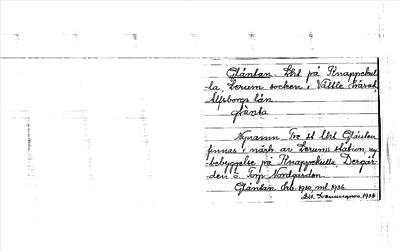 Gläntan. Lht på Knappekul-
la, Lerum socken i Vättle härad,
Älfsborgs län.
glänta
Nynamn. Tre st. lht Gläntan
finnas i närh. av Lerums station, ny
bebyggelse på Knappekulla, Dergår-
den o. Torp Nordgården.
Gläntan lht. 1930, ml 1936.
1938